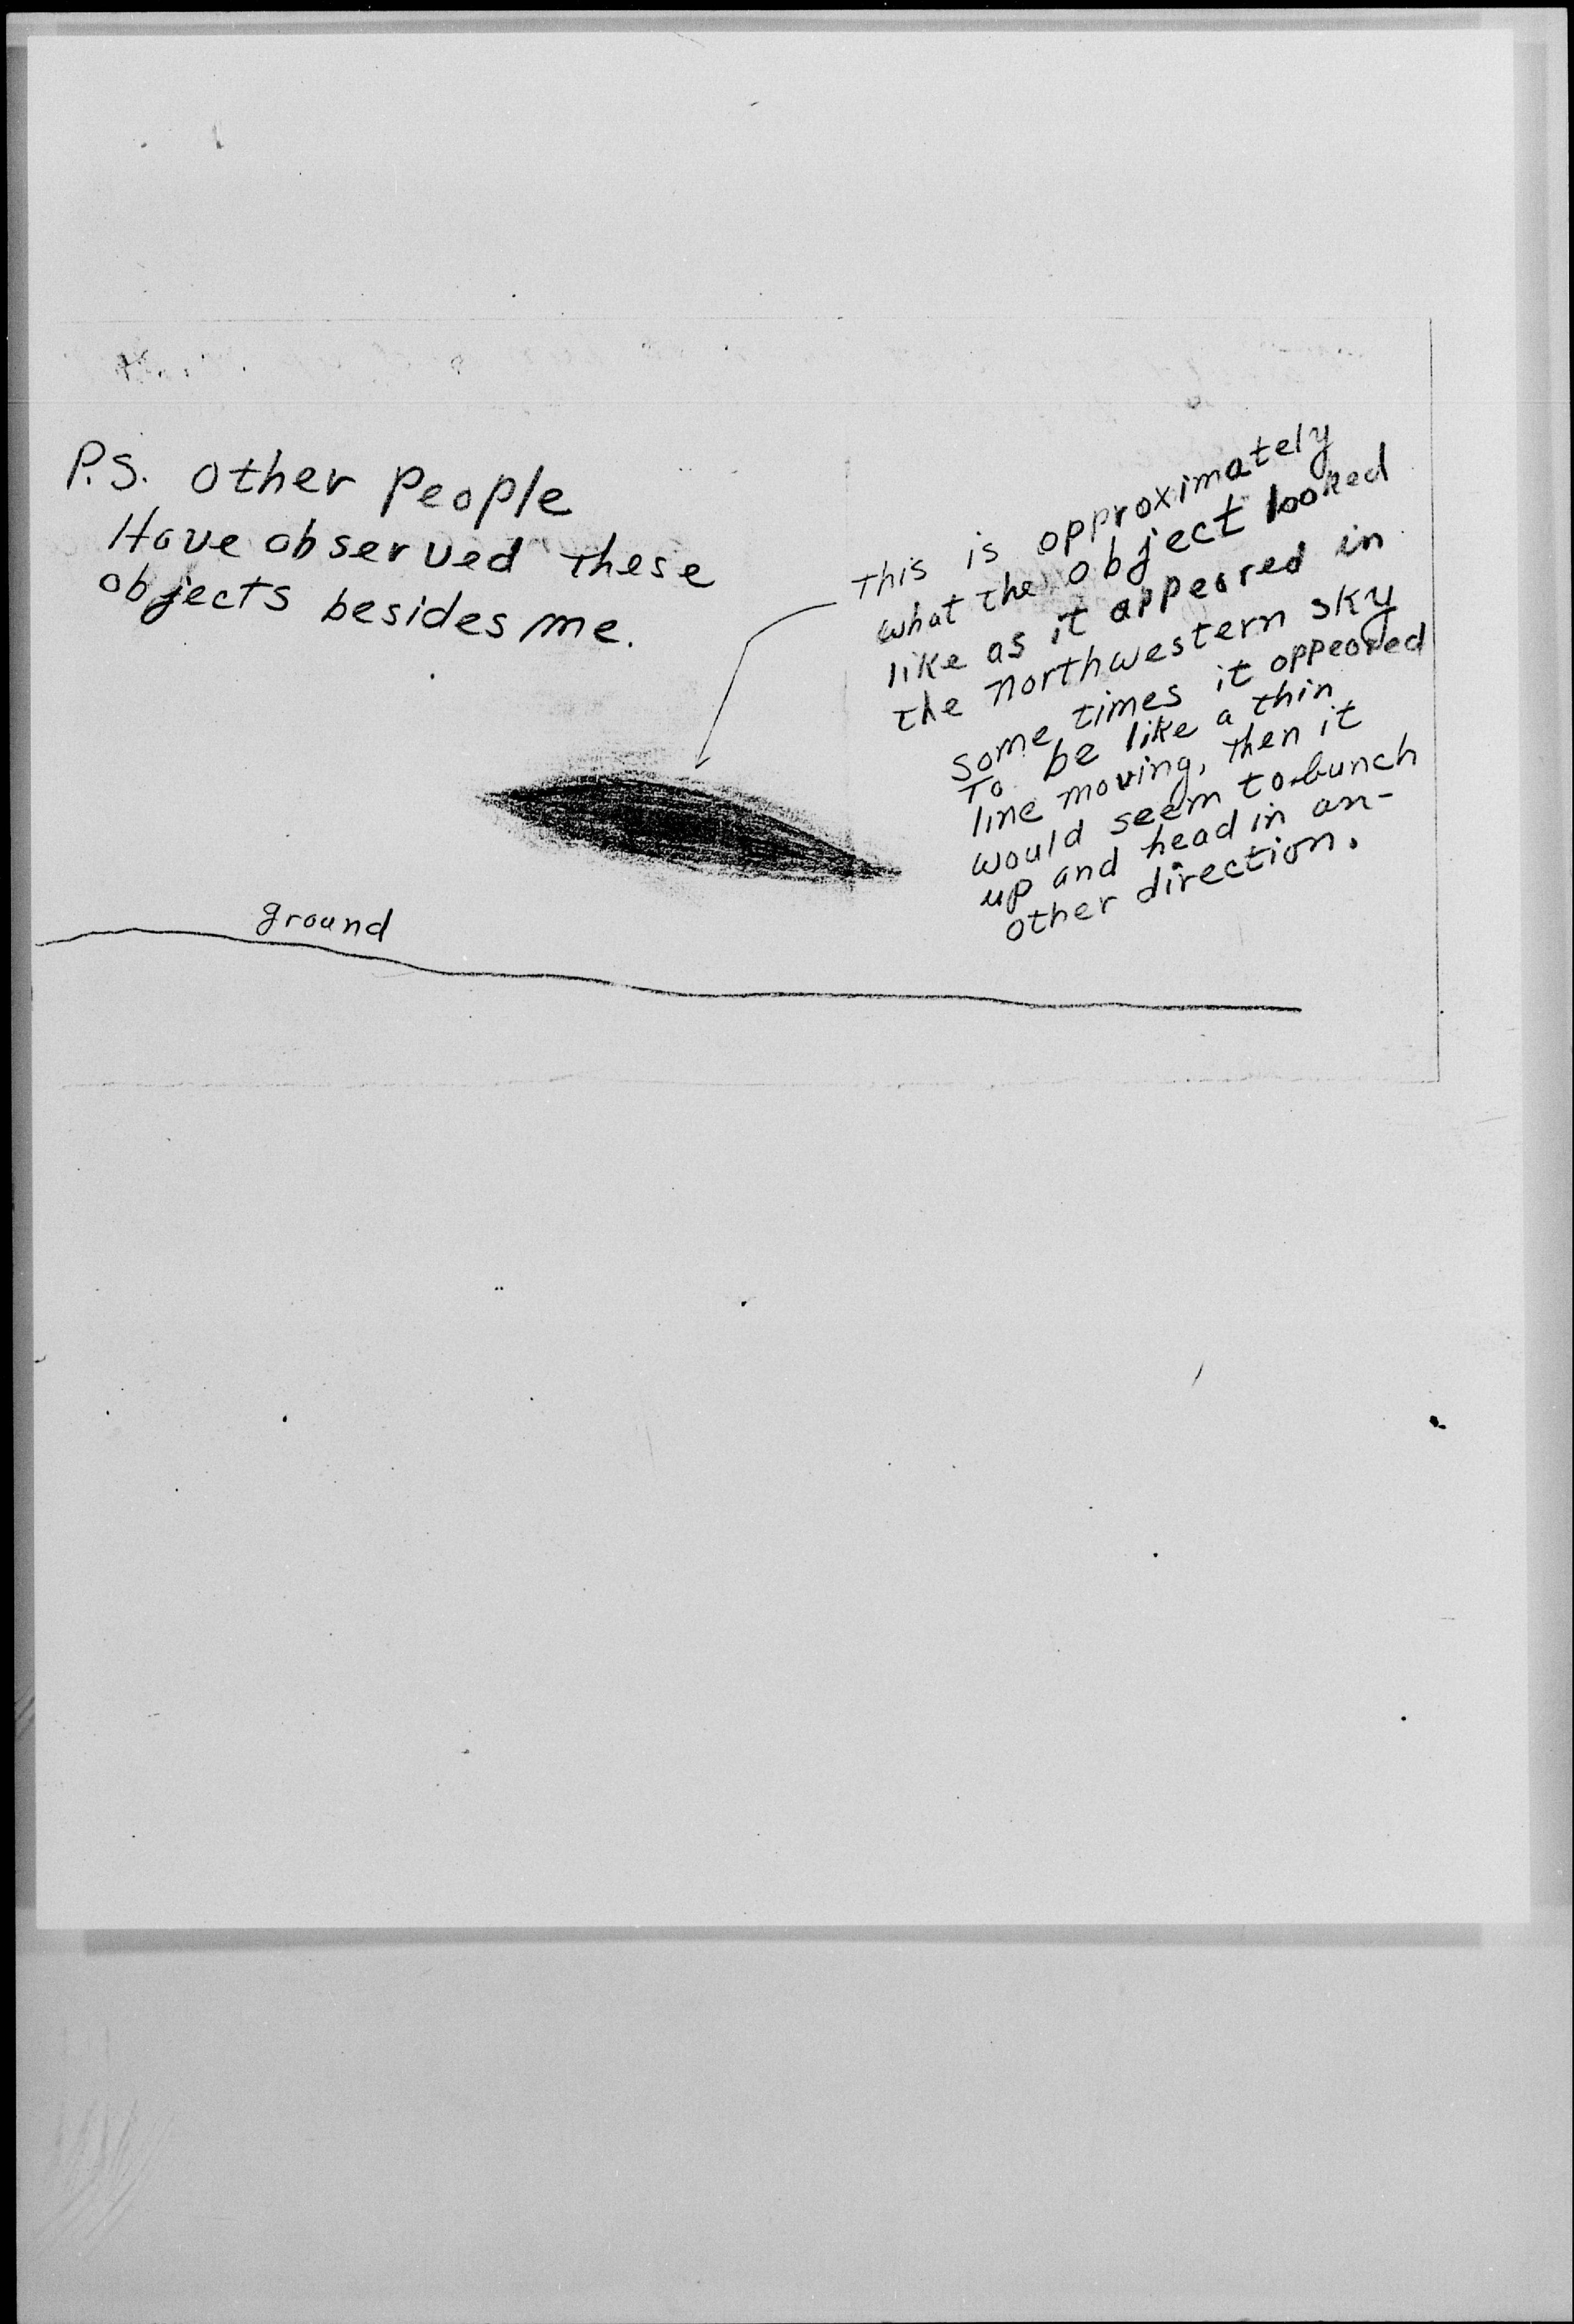 P.S. Other People
Have observed these
objects besides me.
This is approximately
what the object looked
like as it appeared in
the northwestern sky
some times it appeared
To be like a thin
line moving, then it
would seem to bunch
up and head in an-
other direction.
ground